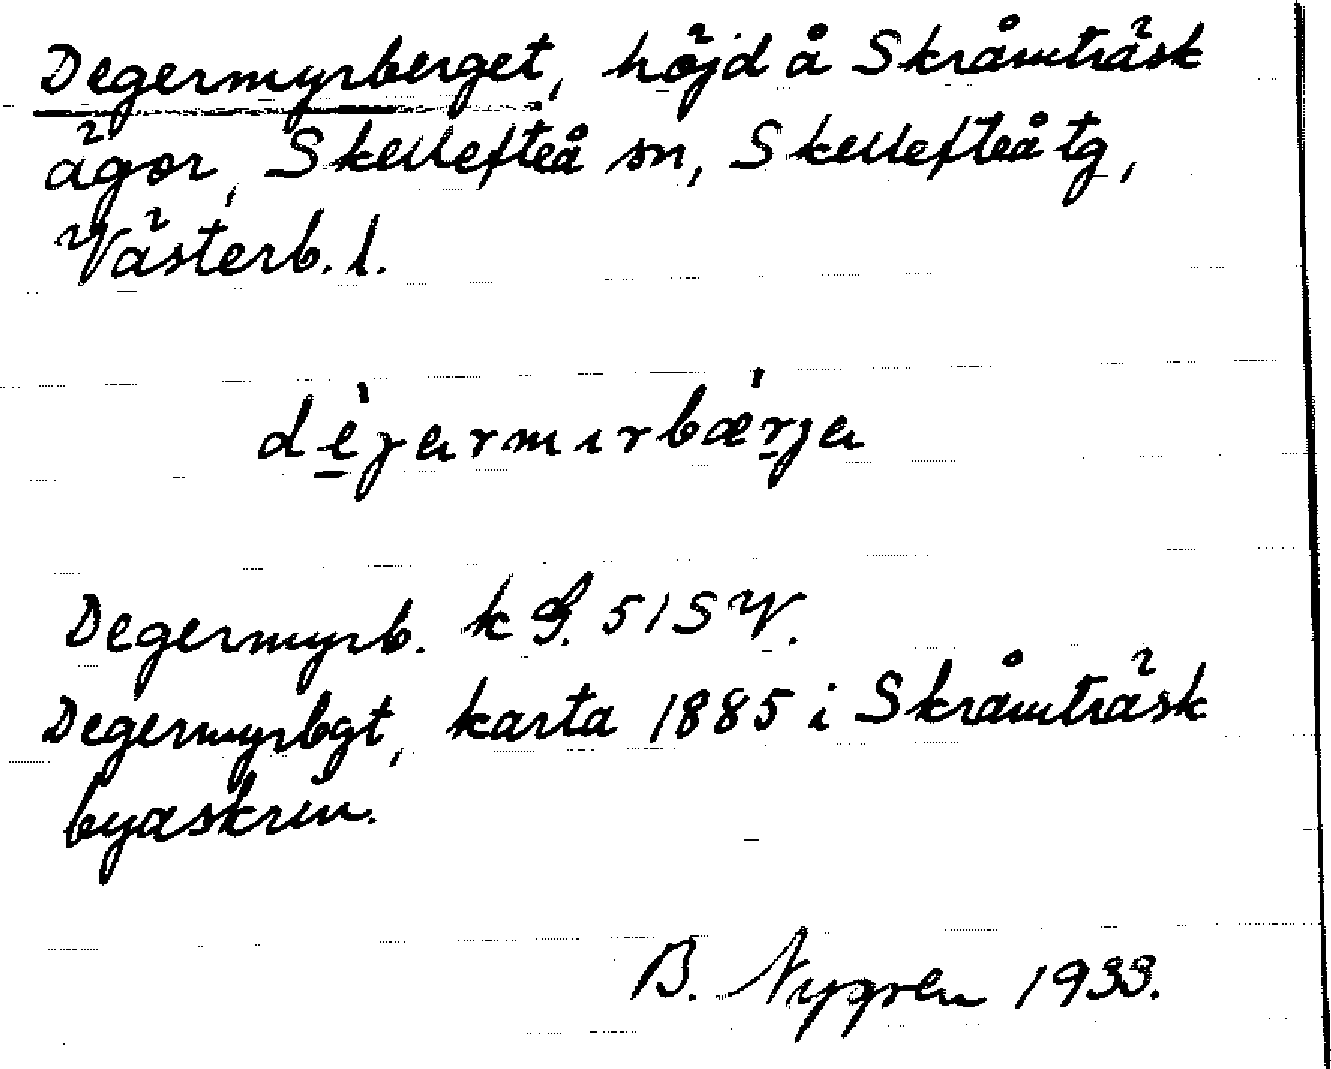 Degermyrberget, höjd å Skråmträsk
ägor, Skellefteå sn, Skellefteå tg,
Västerb. l.
dèjarmırbæ̀rja
Degermyrb. k G. 51 SV.
Degermyrbgt, karta 1885 i Skråmträsk
byaskrin.
B. Nygren 1933.